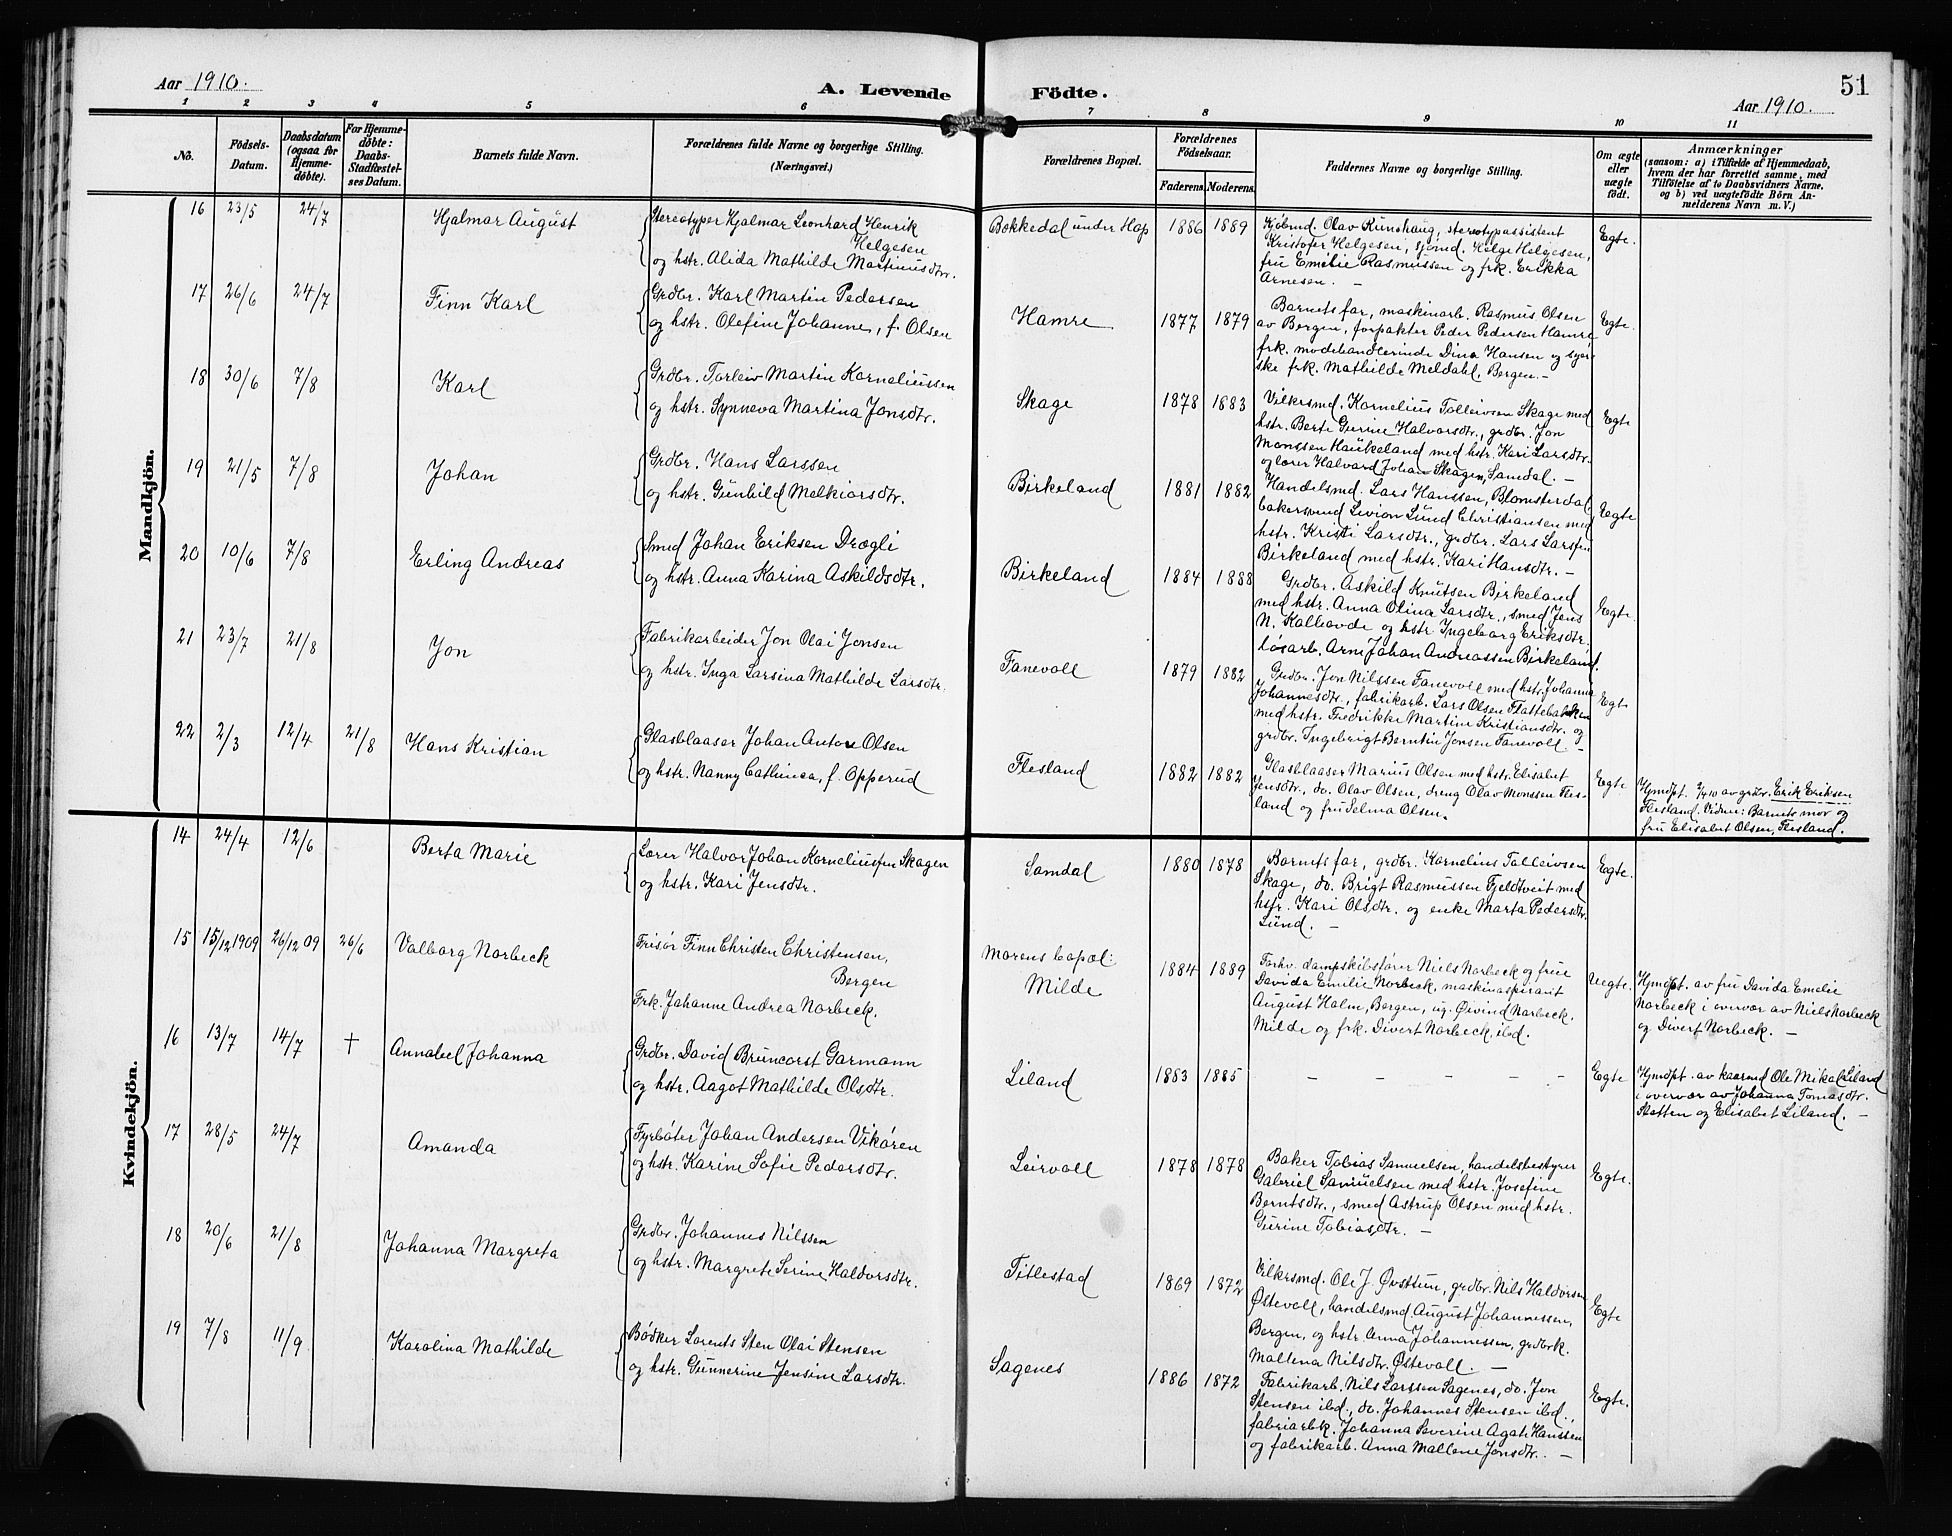 Aar 1910.
A. Levende Födte.
51
Aar 1910.
1 2 3 4 5 6 7 8 9 10 11
No.
Födsels-Datum.
Daabsdatum (ogsaa for Hjemme-döbte).
For Hjemme-döbte: Daabs-Stadfæstel-ses Datum.
Barnets fulde Navn.
Forældrenes fulde Navne og borgerlige Stilling. (Næringsvei.)
Forældrenes Bopæl.
Forældrenes Födselsaar.
Faderens. Moderens.
Faddernes Navne og borgerlige Stilling.
Om ægte eller uægte födt.
Anmærkninger
(saasom: a) i Tilfælde af Hjemmedaab, hvem der har forrettet samme, med Tilföielse af to Daabsvidners Navne, og b) ved uægtefödte Börn An-melderens Navn m. V.)
Mandkjön.
16 23/5 24/7 Hjalmar August
Stereotyper Hjalmar Leonhard Henrik
Helgesen
og hstr. Alida Mathilde Martinusdtr.
Bokkedal under Hop 1886 1889
Kjöbmd. Olav Runshaug, stereotypassistent
Kristofer Helgesen, sjömd. Helge Helgesen,
fru Emelie Rasmussen og frk. Erikka
Arnesen. —
Egte.
17 26/6 24/7 Finn Karl
Grdbr. Karl Martin Pedersen
og hstr. Olefine Johanne, f. Olsen
Hamre 1877 1879
Barnets far, maskinarb. Rasmus Olsen
av Bergen, forpakter Peder Pedersen Hamre
frk. modehandlerinde Dina Hansen og syer-
ske frk. Mathilde Meldahl, Bergen. —
Egte.
18 30/6 7/8 Karl
Grdbr. Torleiv Martin Korneliussen
og hstr. Synneva Martina Jonsdtr.
Skage 1878 1883
Vilkrsmd. Kornelius Tolleivsen Skage med
hstr. Berte Gurine Halvorsdtr., grdbr. Jon
Monssen Haukeland med hstr. Kari Larsdtr.
og lærer Halvard Johan Skagen, Samdal. —
Egte
19 21/5 7/8 Johan
Grdbr. Hans Larssen
og hstr. Gunhild Melkiorsdtr.
Birkeland 1881 1882
Handelsmd. Lars Hanssen, Blomsterdal,
bakersvend Levion Lund Christiansen med
hstr. Kristi Larsdtr., grdbr. Lars Larssen
Birkeland med hstr. Kari Hansdtr. —
Egte
20 10/6 7/8 Erling Andreas
Smed Johan Eriksen Drægli
og hstr. Anna Karina Askildsdtr.
Birkeland 1884 1888
Grdbr. Askild Knutsen Birkeland
med hstr. Anna Olina Larsdtr., smed Jens
N. Kalhovde og hstr Ingeborg Eriksdtr.
lösarb. Arne Johan Andreassen Birkeland.
Egte.
21 23/7 21/8 Jon
Fabrikarbeider Jon Olai Jonsen
og hstr. Inga Larsina Mathilde Larsdtr.
Fanevoll 1879 1882
Grdbr. Jon Nilssen Fanevoll med hstr. Johanna
Johannesdtr., fabrikarb. Lars Olsen Flattebakken
med hstr. Fredrikke Martine Kristiansdtr. og
grdbr. Ingebrigt Berntin Jonsen Fanevoll. —
Egte
22 2/3 12/4 21/8 Hans Kristian
Glasblaaser Johan Anton Olsen
og hstr. Nanny Cathinca, f. Opperud
Flesland 1882 1882
Glasblaaser Marius Olsen med hstr. Elisabet
Jensdtr., do. Olav Olsen, dreng Olav Monssen Fles-
land og fru Selma Olsen.
Egte
Hjmdpt. 7/4 10 av grdbr. Erik Eriksen
Flesland. Vidner: Barnets mor og
fru Elisabet Olsen, Flesland.
Kvindekjön.
14 24/4 12/6 Berta Marie
Lærer Halvor Johan Korneliussen Skagen
og hstr. Kari Jensdtr.
Samdal 1880 1878
Barnets far, grdbr. Kornelius Tolleivsen
Skage, do. Brigt Rasmussen Fjeldtveit med
hstr. Kari Olsdtr. og enke Marta Pedersdtr.
Lund. —
Egte.
15 15/12 1909 26/12 09 26/6 Valborg Norbeck
Frisör Finn Christen Christensen,
Bergen
Frk. Johanne Andrea Norbeck.
Morens bopæl:
Milde 1884 1889
Forhv. dampskibsförer Niels Norbeck og frue
Davida Emilie Norbeck, maskinaspirant
August Halm, Bergen, ug. Öivind Norbeck.
Milde og frk. Divert Norbeck, ibd.
Uegte.
Hjmdpt. av fru Davida Emelie
Norbeck i overvær av Niels Norbeck
og Divert Norbeck. —
16 13/7 14/7 † Annabel Johanna
Grdbr. David Bruncorst Garmann
og hstr. Aagot Mathilde Olsdtr.
Liland 1883 1885
— — — — —
Egte
Hjmdpt. av kaarmd Ole Mikal Liland
i overvær av Johanna Tomasdtr.
Sletten og Elisabet Liland. —
17 28/5 24/7 Amanda
Fyrböter Johan Andersen Vikören
og hstr. Karine Sofie Pedersdtr.
Leirvoll 1878 1878
Baker Tobias Samuelsen, handelsbestyrer
Gabriel Samuelsen med hstr. Josefine
Berntsdtr., smed Astrup Olsen med hstr.
Gurine Tobiasdtr. —
Egte.
18 20/6 21/8 Johanna Margreta
Grdbr. Johannes Nilssen
og hstr. Margrete Serine Haldorsdtr.
Titlestad 1869 1872
Vilkrsmd. Ole J. Övsttun, grdbr. Nils Haldorsen
Östevoll, handelsmd August Johannessen,
Bergen, og hstr. Anna Johannessen, grdbrk.
Mallena Nilsdtr. Östevoll. —
Egte
19 7/8 11/9 Karolina Mathilde
Bödker Lorents Sten Olai Stensen
og hstr. Gunnerine Jensine Larsdtr.
Sagenes 1886 1872
Fabrikarb. Nils Larssen Sagenes, do. Jon
Stensen ibd., do. Johannes Stensen ibd.,
fabriarbk. Johanna Severine Agate Hanssen
og fabrikarb. Anna Mallene Jonsdtr. —
Egte.